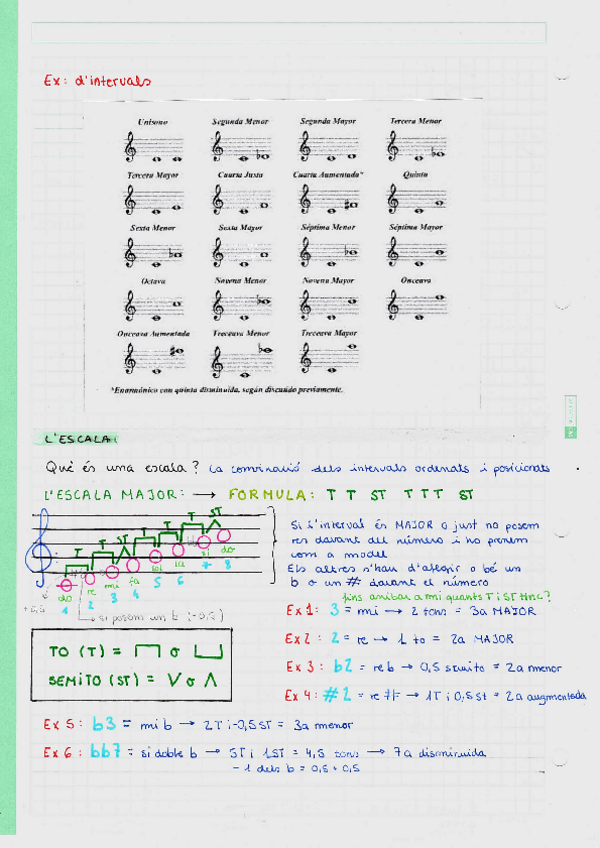 Ex: d'intervals
Unisono Segunda Menor Segunda Mayor Tercera Menor
Tercera Mayor Cuarta Justa Cuarta Aumentada* Quinta
Sexta Menor Sexta Mayor Séptima Menor Séptima Mayor
Octava Novena Menor Novena Mayor Onceava
Onceava Aumentada Treceava Menor Treceava Mayor
*Enarmónico con quinta disminuida, según discutido previamente.
L'ESCALA:
Què és una escala? La convinació dels intervals ordenats i posicionats
L'ESCALA MAJOR: → FÓRMULA: T T ST T T T ST
T T ST T T T ST
do re mi fa sol la si do
1 2 3 4 5 6 7 8
si posem un b (-0,5)
Si l'interval és MAJOR o just no posem
res davant del número i ho prenem
com a model
Els altres s'han d'afegir o bé un
b o un # davant el número
fins arribar a mi quants T i ST HHC?
Ex 1: 3 = mi → 2 tons = 3a MAJOR
Ex 2: 2 = re → 1 to = 2a MAJOR
Ex 3: b2 = re b → 0,5 semito = 2a menor
Ex 4: #2 = re # → 1T i 0,5 st = 2a augmentada
TO (T) = o
SEMITO (ST) = V o Λ
Ex 5: b3 = mi b → 2T i -0,5ST = 3a menor
Ex 6: bb7 = si doble b → 5T i 1ST = 4,5 tons → 7a disminuida
- 1 dels b = 0,5 + 0,5